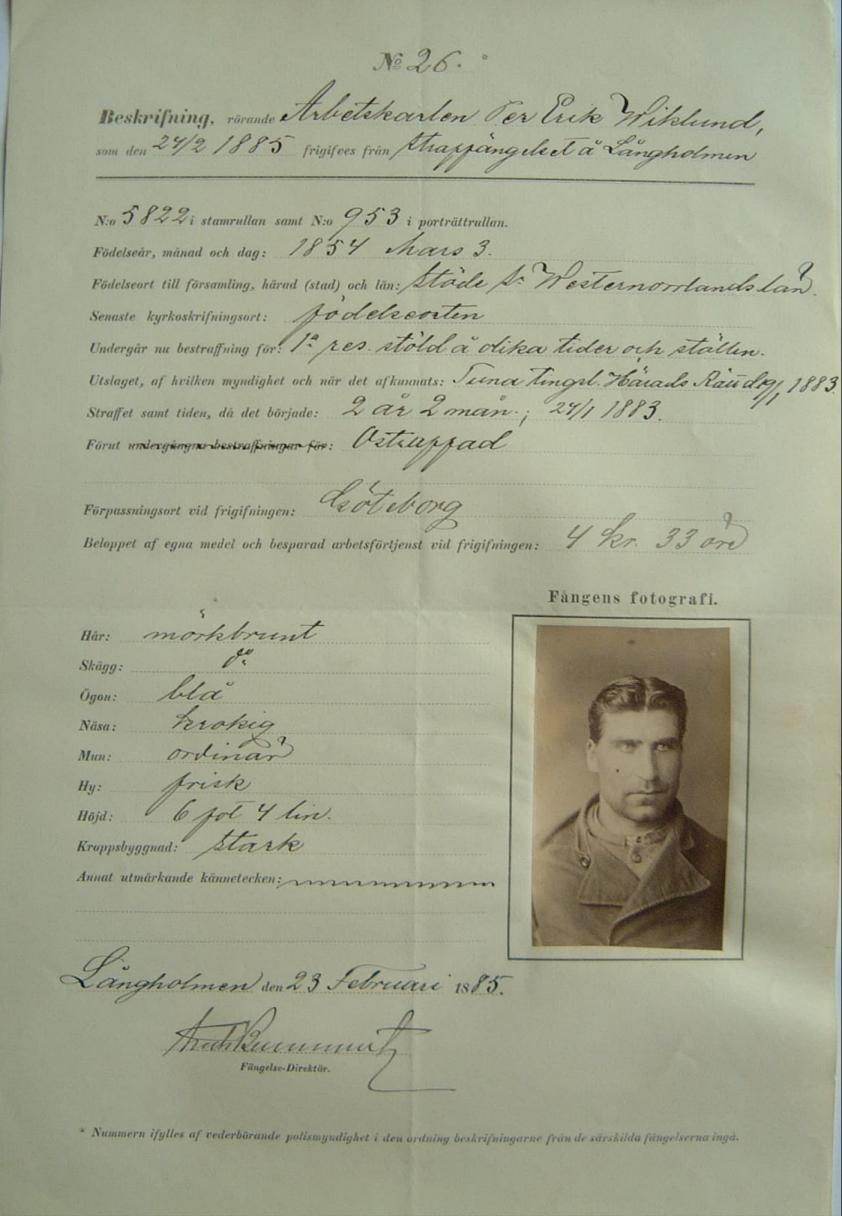 No 26. *
Beskrifning, rörande Arbetskarlen Per Erik Wiklund,
som den 24/2 1885 frigifves från straffängelset å Långholmen
N:o 5822 i stamrullan samt N:o 953 i porträttrullan.
Födelseår, månad och dag: 1854 Mars 3.
Födelseort till församling, härad (stad) och län: Stöde Westernorrlands län.
Senaste kyrkoskrifningsort: födelseorten
Undergår nu bestraffning för: 1a res. stöld å olika tider och ställen.
Utslaget, af hvilken myndighet och när det afkunnats: Tuna tingsl. Härads Rätt d 1883.
Straffet samt tiden, då det började: 2 år 2 mån.; 24/1 1883.
Förut undergångna bestraffningar för: Ostraffad
Förpassningsort vid frigifningen: Göteborg
Beloppet af egna medel och besparad arbetsförtjenst vid frigifningen: 4 kr. 33 öre
Fångens fotografi.
Hår: mörkbrunt
Skägg: do
Ögon: blå
Näsa: krokig
Mun: ordinär
Hy: frisk
Höjd: 6 fot 4 lin.
Kroppsbyggnad: stark
Annat utmärkande kännetecken:
Långholmen den 23 Februari 1885.
Fängelse-Direktör.
* Nummern ifylles af vederbörande polismyndighet i den ordning beskrifningarne från de särskilda fängelserna ingå.